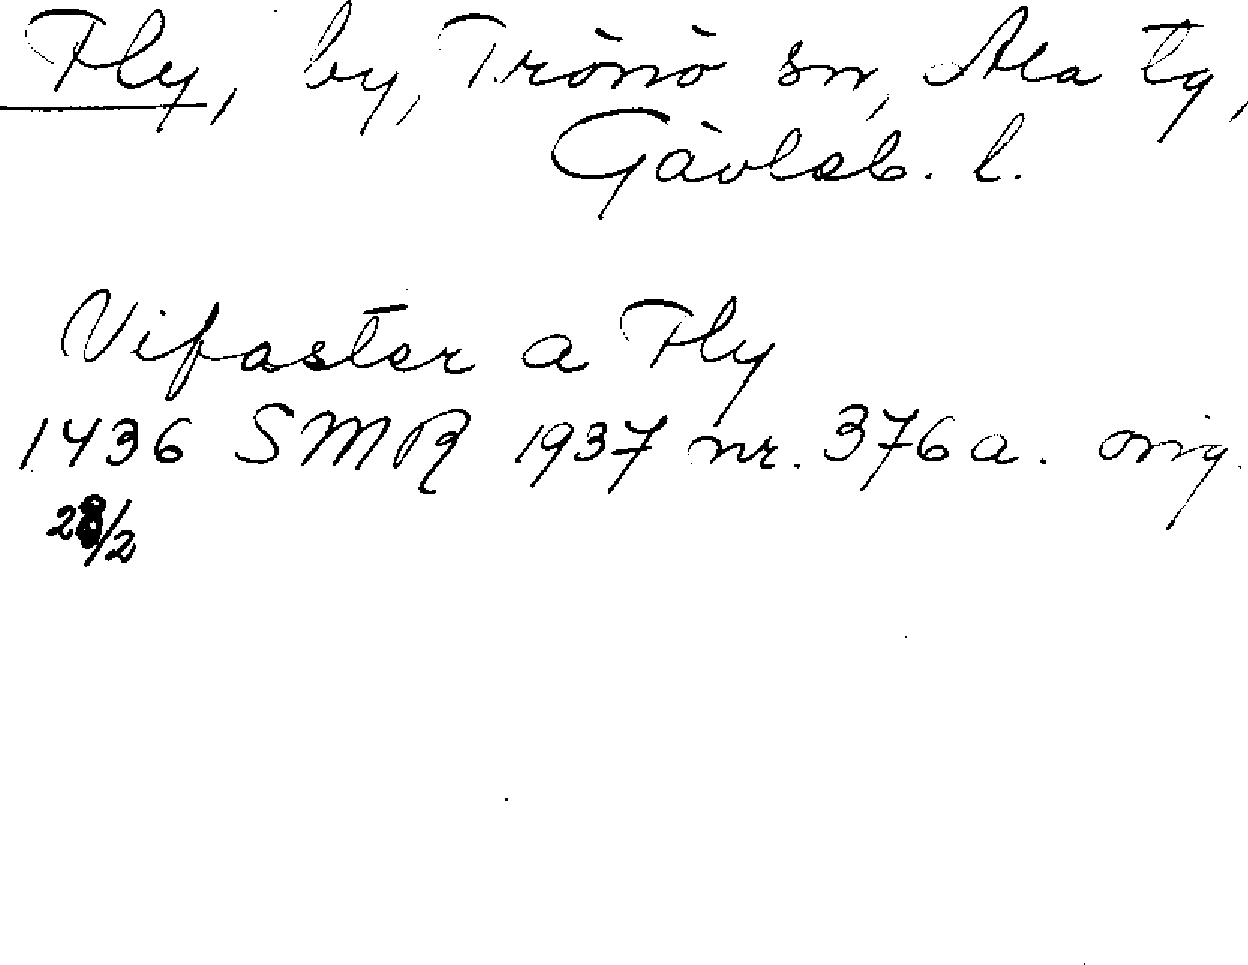 Fly, by, Trönö sn, Ala tg,
Gävleb. l.
Vifaster a Fly
1436 SMR 1937 nr. 376a. orig.
28/2